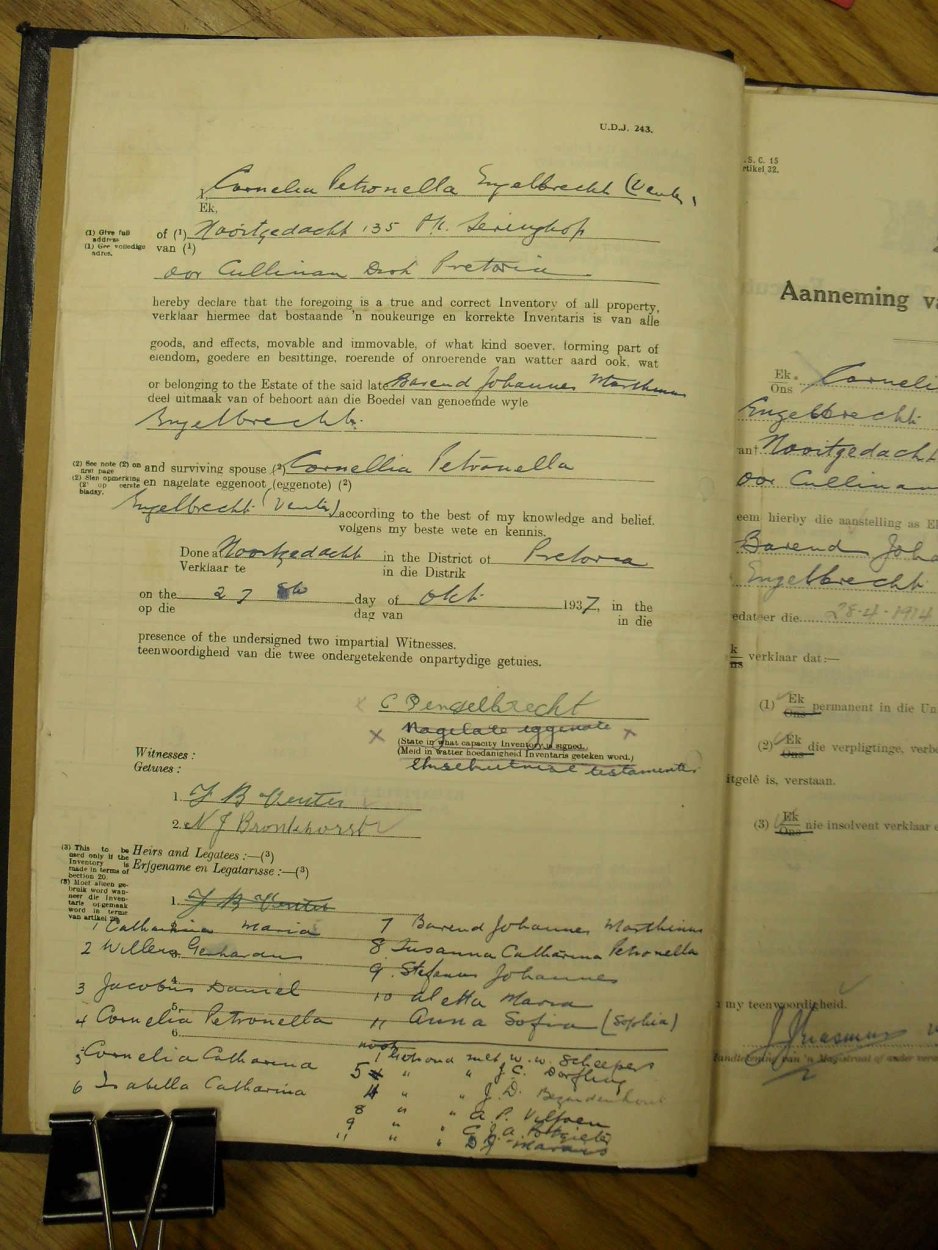 U.D.J. 243.
I, Cornelia Petronella Engelbrecht (Venter)
Ek,
(1) Give full address
(1) Gee volledige adres.
of (¹) Noortgedacht 135 Pk.
van (¹)
oor Cullinan Dist Pretoria
hereby declare that the foregoing is a true and correct Inventory of all property,
verklaar hiermee dat bostaande 'n noukeurige en korrekte Inventaris is van alle
goods, and effects, movable and immovable, of what kind soever, forming part of
eiendom, goedere en besittinge, roerende of onroerende van watter aard ook, wat
or belonging to the Estate of the said late Barend Johannes Marthinus
deel uitmaak van of behoort aan die Boedel van genoemde wyle
Engelbrecht.
(2) See note (2) on first page
(2) Sien opmerking (2) op eerste bladsy.
and surviving spouse (²) Cornellia Petronella
en nagelate eggenoot (eggenote) (²)
Engelbrecht (Venter) according to the best of my knowledge and belief.
volgens my beste wete en kennis.
Done at Noortgedacht in the District of Pretoria
Verklaar te in die Distrik
on the 27 ste day of Okt 1937, in the
op die dag van in die
presence of the undersigned two impartial Witnesses.
teenwoordigheid van die twee ondergetekende onpartydige getuies.
C P engelbrecht
Nagelate eggenote
(State in what capacity Inventory is signed.)
(Meld in watter hoedanigheid Inventaris geteken word.)
testamenter
Witnesses :
Getuies :
1. J B Venter
2. N J Bronkhorst
(3) This to be used only if the Inventory is made in terms of Section 20.
(3) Moet alleen gebruik word wanneer die Inventaris opgemaak word in terme van artikel 20.
Heirs and Legatees :—(³)
Erfgename en Legatarisse :—(³)
1. J B Venter
1 Catharina Maria
2 Willem Gerhardus
3 Jacobus Daniel
4 Cornelia Petronella
5 Cornelia Catharina
6 Isabella Catharina
7 Barend Johannes Marthinus
8 Susanna Catharina Petronella
9 Stefanus Johannes
10 Aletta Maria
11 Anna Sofia (Sophia)
1 Getroud met W. W. Scheepers
5 " " J. C. Dorfling
4 " " J. D. Bezuidenhout
8 " " A. P. Viljoen
9 " " C. J. A. Potgieter
11 " " D. J. Marais
S. C. 15
rtikel 32.
Aanneming va
Ek Corneli
Ons
Engelbrecht
an¹ Noortgedacht
oor Cullinan
eem hierby die aanstelling as E
Barend Joha
Engelbrecht
edateer die 28-4-1914
k
ns verklaar dat :—
(1) Ek
Ons permanent in die Un
(2) Ek
Ons die verpligtinge, verbo
itgelê is, verstaan.
(3) Ek
Ons nie insolvent verklaar
my teenwoordigheid.
J J Erasmus